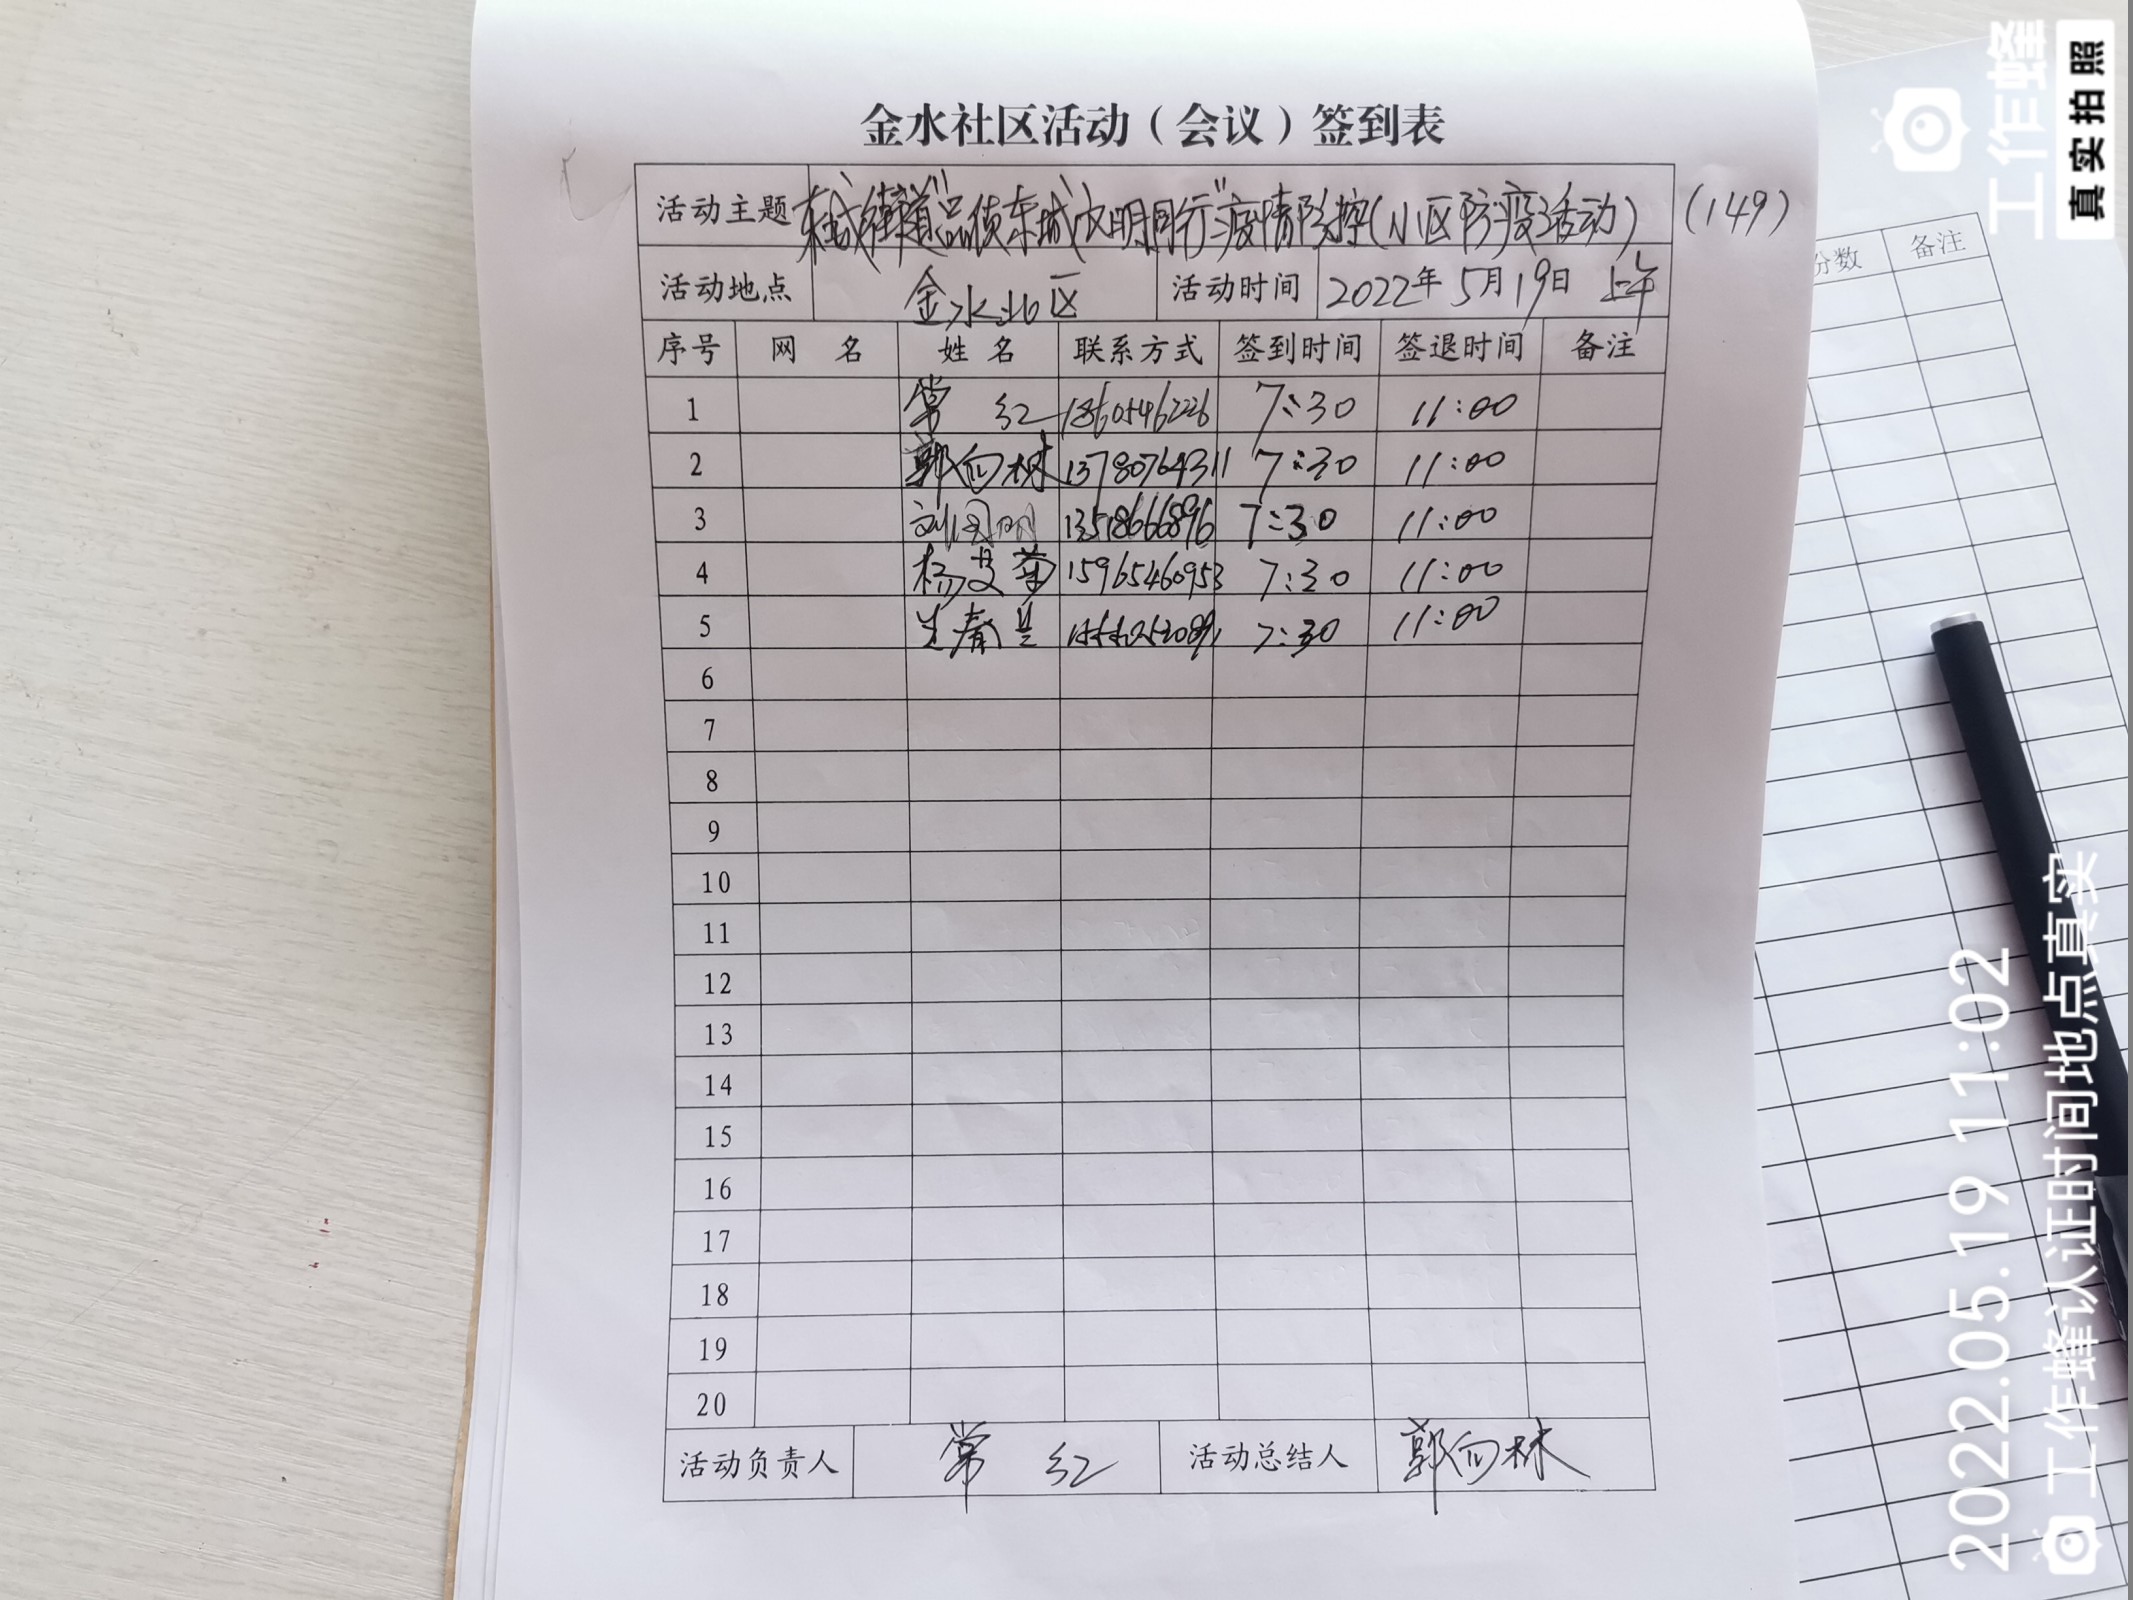 金水社区活动（会议）签到表
活动主题 东城街道"品质东城 文明同行"疫情防控(小区防疫活动) (149)
活动地点 金水北区 活动时间 2022年5月19日 上午
序号 网 名 姓 名 联系方式 签到时间 签退时间 备注
1 常 红 18605462226 7:30 11:00
2 郭向林 13780764311 7:30 11:00
3 13518666896 7:30 11:00
4 杨艾菊 15965460953 7:30 11:00
5 7:30 11:00
6
7
8
9
10
11
12
13
14
15
16
17
18
19
20
活动负责人 常 红 活动总结人 郭向林
分数 备注
工作蜂
真实拍照
2022.05.19 11:02
工作蜂认证时间地点真实